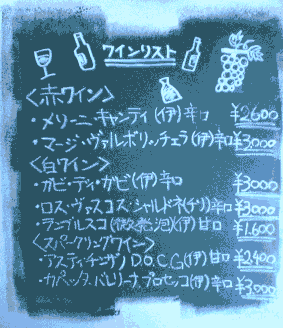 ワインリスト
<赤ワイン>
・メリーニ キャンティ(伊)辛口 ¥2600
・マージ・ヴァルポリッチェラ(伊)辛口 ¥3,000
<白ワイン>
・ガビ・ディ・ガビ(伊)辛口 ¥3000
・ロス・ヴァスコス シャルドネ(チリ)辛口 ¥3000
・ランブルスコ(微発泡)(伊)甘口 ¥1,600
<スパークリングワイン>
・アスティ・チンザノ D.O.C.G(伊)甘口 ¥2,400
・カペッタ・バレリーナ プロセッコ(伊)辛口 ¥3,000